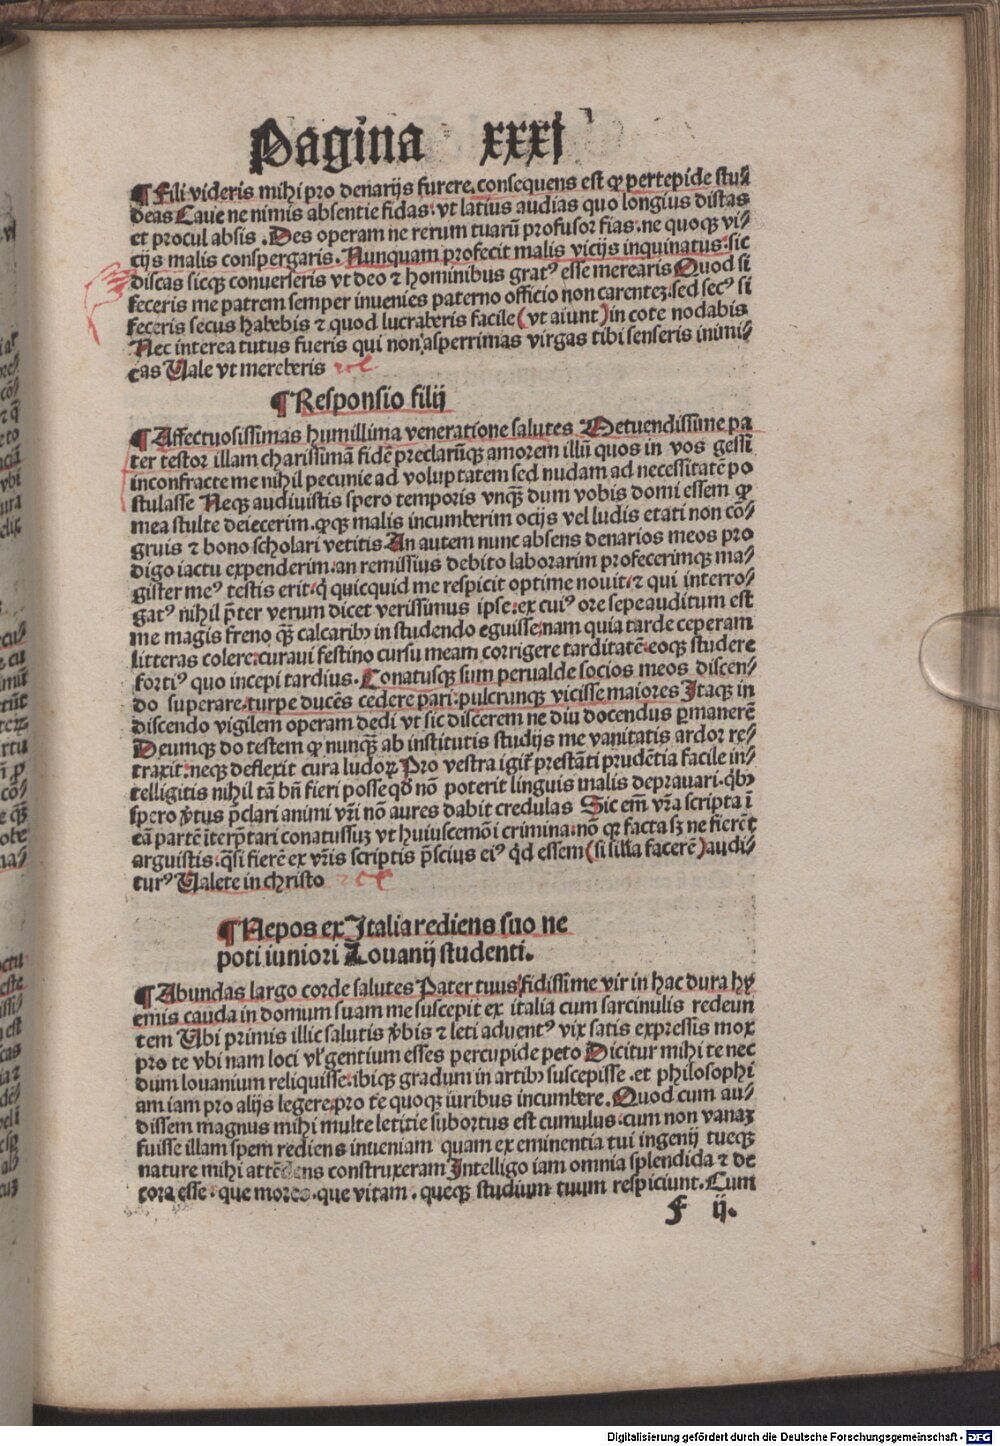 Pagina xxxj
¶ Fili videris mihi pro denarijs furere. consequens est ꝙ pertepide stu⸗
deas Caue ne nimis absentie fidas. vt latius audias quo longius distas
et procul absis. Des operam ne rerum tuarū profusor fias. ne quoqꝫ vi⸗
cijs malis conspergaris. Nunquam profecit malis vicijs inquinatus. sic
discas sicqꝫ conuerseris vt deo ⁊ hominibus gratꝰ esse merearis Quod si
feceris me patrem semper inuenies paterno officio non carentez. sed secꝰ si
feceris secus habebis ⁊ quod lucraberis facile (vt aiunt) in cote nodabis
Nec interea tutus fueris qui non asperrimas virgas tibi senseris inimi⸗
cas Uale vt mereberis
¶ Responsio filij
¶ Affectuosissimas humillima veneratione salutes Metuendissime pa
ter testor illam charissimā fidē preclarūqꝫ amorem illū quos in vos gessi
inconfracte me nihil pecunie ad voluptatem sed nudam ad necessitatē po
stulasse Neqꝫ audiuistis spero temporis vnqꝫ̄ dum vobis domi essem ꝙ
mea stulte deiecerim. ꝙqꝫ malis incumberim ocijs vel ludis etati non cō⸗
gruis ⁊ bono scholari vetitis An autem nunc absens denarios meos pro
digo iactu expenderim. an remissius debito laborarim profecerimqꝫ ma⸗
gister meꝰ testis erit. q̇ quicquid me respicit optime nouit. ⁊ qui interro⸗
gatꝰ nihil p̄ter verum dicet verissimus ipse. ex cuiꝰ ore sepe auditum est
me magis freno qꝫ̄ calcaribꝫ in studendo eguisse. nam quia tarde ceperam
litteras colere. curaui festino cursu meam corrigere tarditatē. eoqꝫ studere
fortiꝰ quo incepi tardius. Conatusqꝫ sum perualde socios meos discen⸗
do superare. turpe ducēs cedere pari. pulcrunqꝫ vicisse maiores Itaqꝫ in
discendo vigilem operam dedi vt sic discerem ne diu docendus ꝑmanerē
Deumqꝫ do testem ꝙ nunqꝫ̄ ab institutis studijs me vanitatis ardor re⸗
traxit. neqꝫ deflexit cura ludoꝝ Pro vestra igit̄ prestāti prudētia facile in⸗
telligitis nihil tā bn̄ fieri posse qd̄ nō poterit linguis malis deprauari. qͥbꝫ
spero v̄tus p̄clari animi vr̄i nō aures dabit credulas Sic em̄ vr̄a scripta ī
eā partē īterp̄tari conatussuꝫ vt huiuscemōi crimina. nō ꝙ facta sꝫ ne fierēt
arguistis. qͣsi fierē ex vr̄is scriptis p̄scius eiꝰ qd̄ essem (si illa facerē) audi⸗
turꝰ Ualete in christo
¶ Nepos ex Italia rediens suo ne
poti iuniori Louanij studenti.
¶ Abundas largo corde salutes Pater tuus fidissime vir in hac dura hy
emis cauda in domum suam me suscepit ex italia cum sarcinulis redeun
tem Ubi primis illic salutis v̄bis ⁊ leti aduentꝰ vix satis expressis mox
pro te vbi nam loci vl̓ gentium esses percupide peto Dicitur mihi te nec
dum louanium reliquisse. ibiqꝫ gradum in artibꝫ suscepisse. et philosophi
am iam pro alijs legere. pro te quoqꝫ iuribus incumbere. Quod cum au⸗
dissem magnus mihi multe letitie subortus est cumulus. cum non vanaꝫ
fuisse illam spem rediens inueniam quam ex eminentia tui ingenij tueqꝫ
nature mihi attēdens construxeram Intelligo iam omnia splendida ⁊ de
cora esse. que mores. que vitam. queqꝫ studium tuum respiciunt. Cum
F ij.
Digitalisierung gefördert durch die Deutsche Forschungsgemeinschaft - DFG